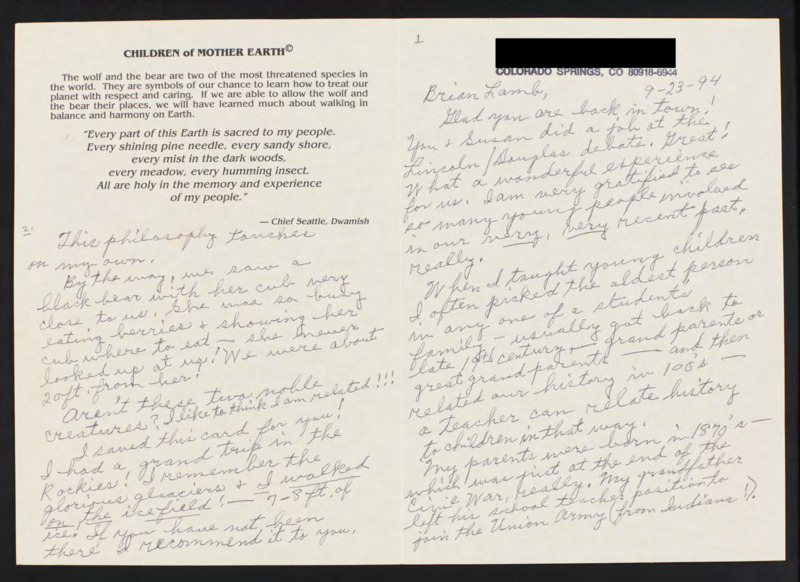 1
COLORADO SPRINGS, CO 80918-6944
Brian Lamb,
9-23-94
Glad you are back in town!
You & Susan did a job at the
Lincoln/Douglas debate. Great!
What a wonderful experience
for us. I am very gratified to see
so many young people involved
in our very, very recent past,
really.
When I taught young children
I often picked the oldest person
in any one of a students'
family – usually got back to
late 19th century – grand parents or
great grand parents — and then
related our history in 100's —
a teacher can relate history
to children in that way.
My parents were born in 1870's —
which was just at the end of the
Civil War, really. My grandfather
left his school teacher position to
join the Union Army (from Indiana!).
CHILDREN of MOTHER EARTH©
The wolf and the bear are two of the most threatened species in
the world. They are symbols of our chance to learn how to treat our
planet with respect and caring. If we are able to allow the wolf and
the bear their places, we will have learned much about walking in
balance and harmony on Earth.
"Every part of this Earth is sacred to my people.
Every shining pine needle, every sandy shore,
every mist in the dark woods,
every meadow, every humming insect.
All are holy in the memory and experience
of my people."
— Chief Seattle, Dwamish
2.
This philosophy touches
on my own.
By the way, we saw a
black bear with her cub very
close to us. She was so busy
eating berries & showing her
cub where to eat – she never
looked up at us! We were about
20ft. from her!
Aren't these two noble
creatures? I like to think I am related!!!
I saved this card for you!
I had a grand trip in the
Rockies! I remember the
glorious glaciers & I walked
on the icefield! — 7-8 ft. of
ice. If you have not been
there I recommend it to you.